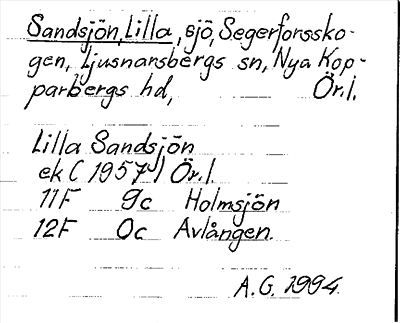 Sandsjön, Lilla, sjö, Segerforssko-
gen, Ljusnarsbergs sn, Nya Kop-
parbergs hd, Ör.l.
Lilla Sandsjön
ek (1957) Ör.l.
11F 9c Holmsjön
12F 0c Avlången.
A.G. 1994.